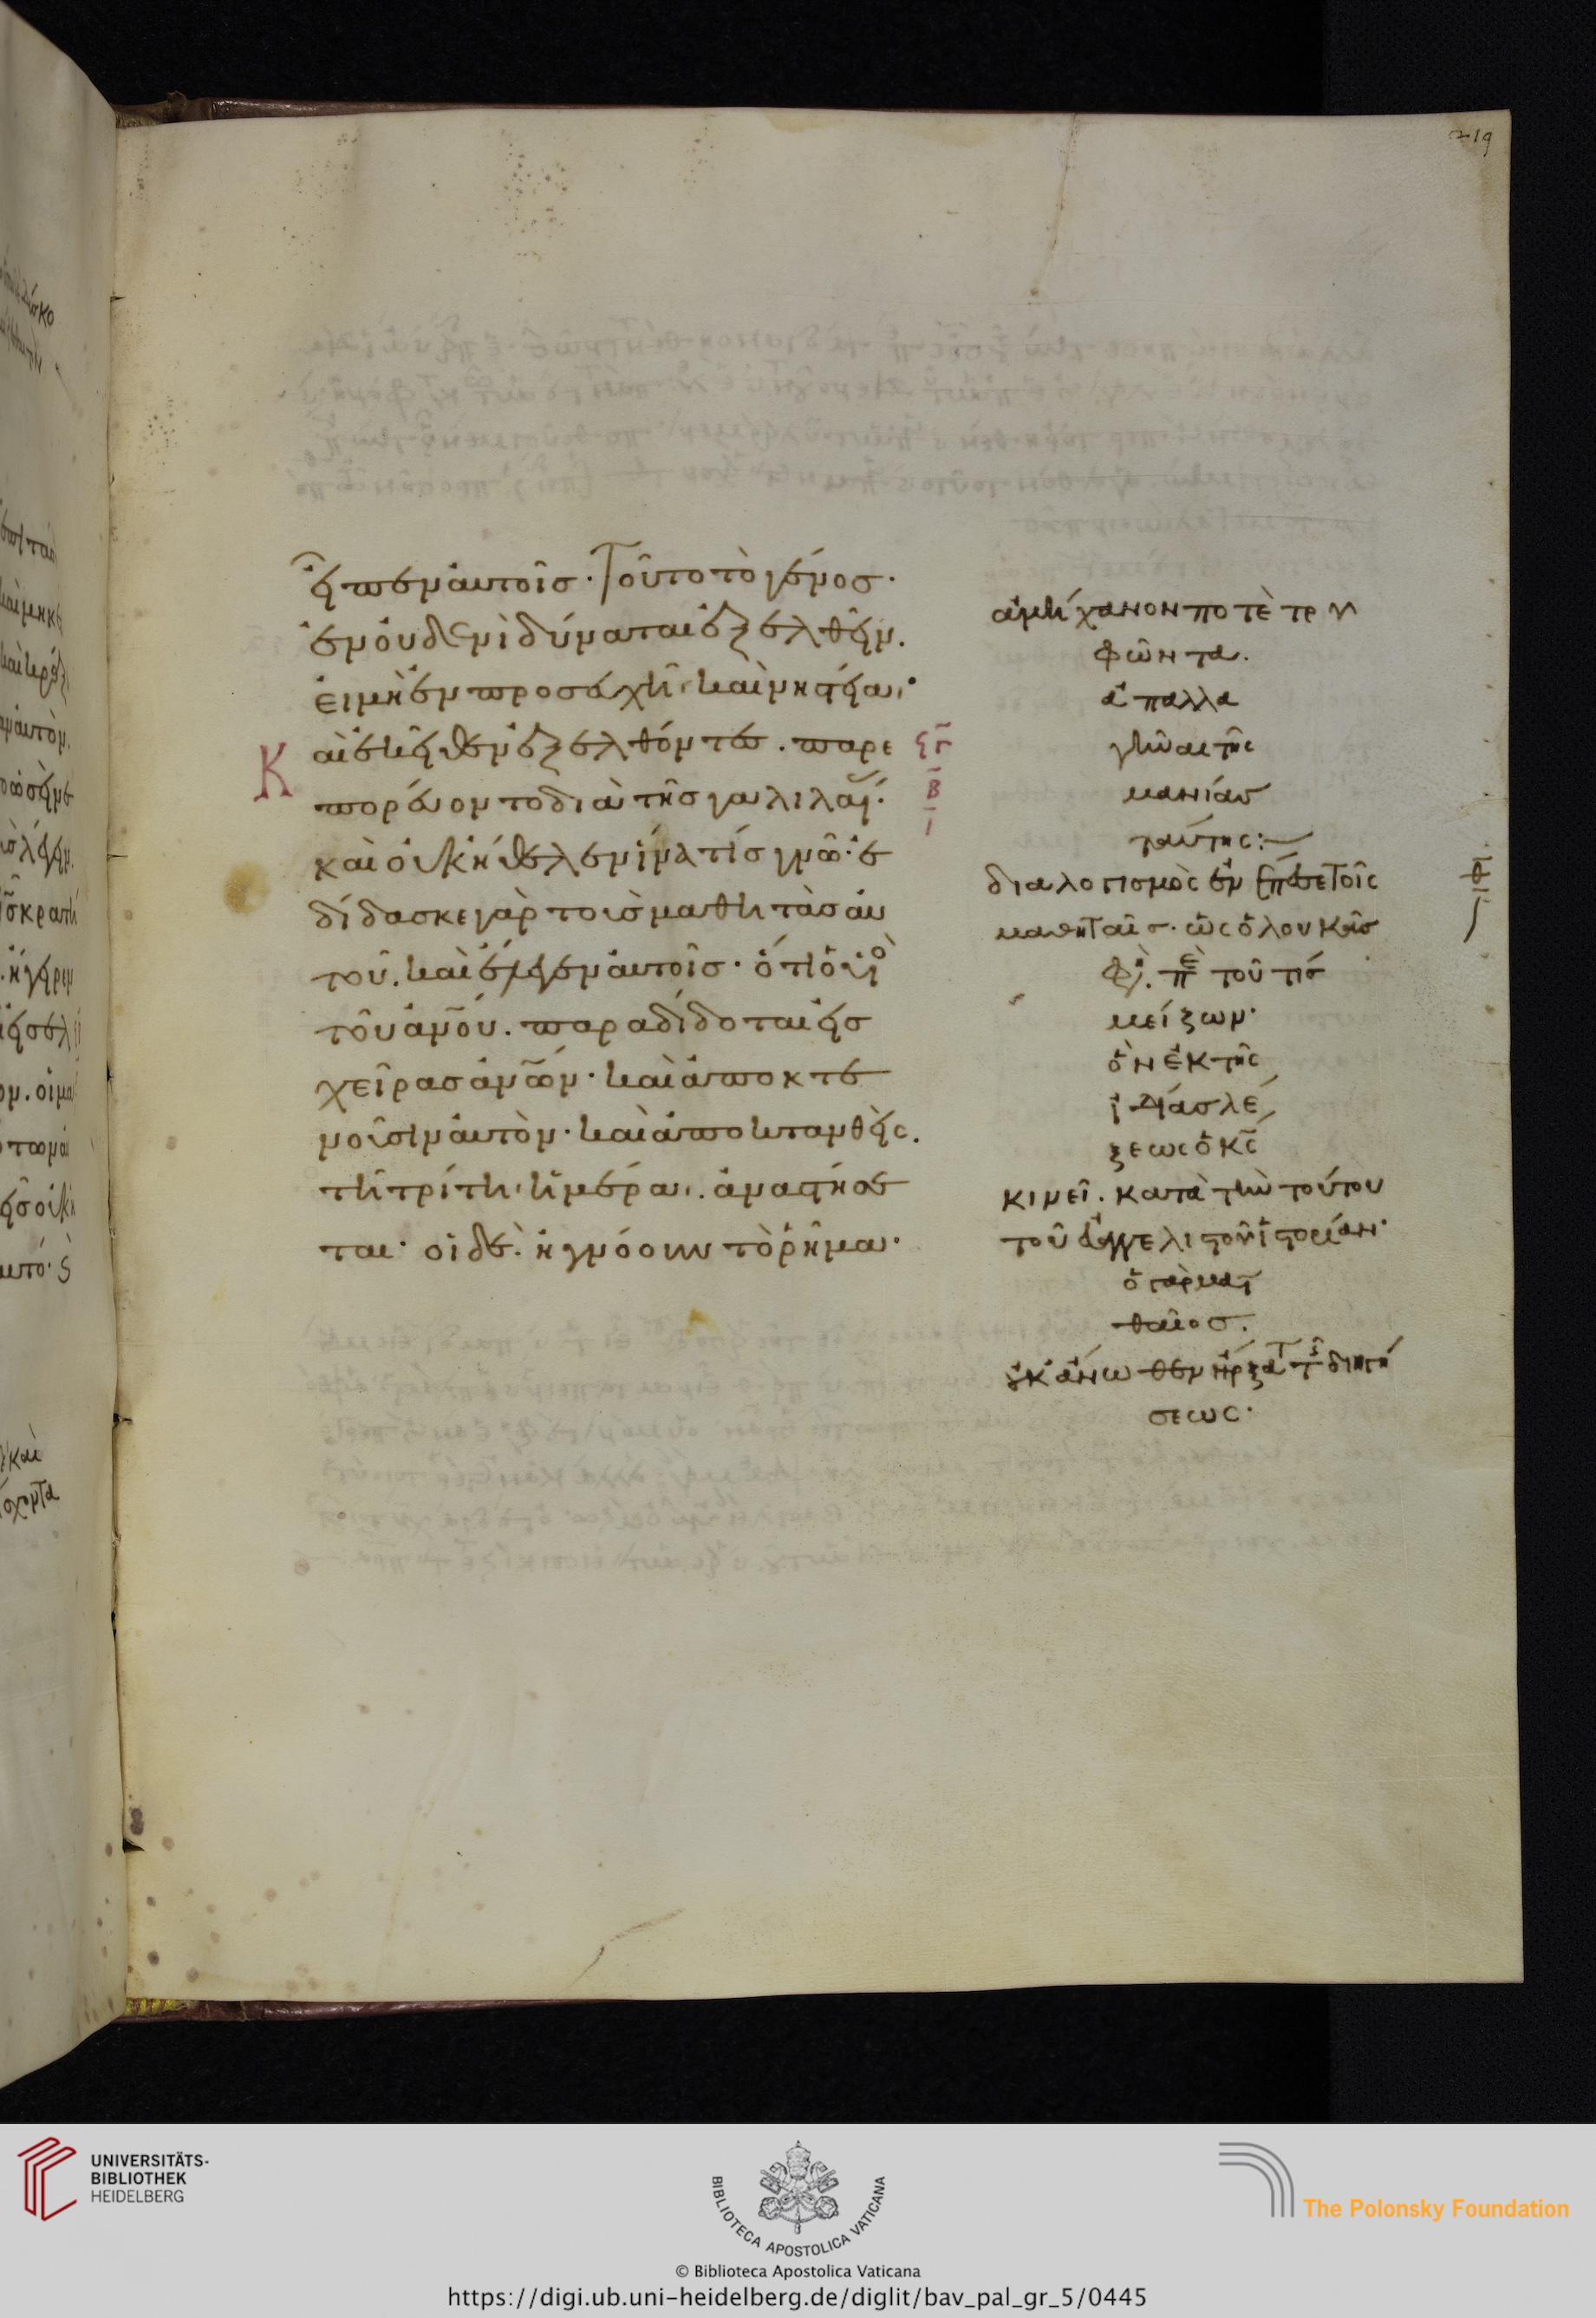 219
εἶπεν αὐτοῖς· Τοῦτο τὸ γένος·
ἐν οὐδενὶ δύναται ἐξελθεῖν.
εἰ μὴ ἐν προσευχῆ καὶ νηστεία·
Καὶ ἐκεῖθεν ἐξελθόντες. παρε
πορεύοντο διὰ τῆς γαλιλαί·
καὶ οὐκ ἤθελεν ἵνα τίς γνῶ· ἐ
δίδασκε γὰρ τοὺς μαθητὰς αὐ
τοῦ. καὶ ἔλεγεν αὐτοῖς· ὅτι ὁ υἱὸ
τοῦ ανου. παραδίδοται εἰς
χεῖρας ανων· καὶ ἀποκτε
νοῦσιν αὐτὸν· καὶ ἀποκτανθεὶς.
τῆ τρίτη ἡμέρα. ἀναστήσε
ται· οἱ δὲ. ἠγνόουν τὸ ῥῆμα·
ϟΓ
Β
Ι
ἀμήχανον ποτὲ τρυ
φῶντα.
ἀπαλλα
γῆναι τῆς
μανίας
ταύτης:
διαλογισμὸς ἐν
μαθηταῖς· ὡς ὁ λουκᾶς
τοῦ τίς
μείζων·
ὃν ἐκ τῆς
ἰδίας λέ
ξεως ὁ κς
κινεῖ. κατὰ τὴν τούτου
τοῦ εὐαγγελιστοῦ ἱστορίαν·
ὁ γὰρ ματ
θαῖος.
σεως·
UNIVERSITÄTS-
BIBLIOTHEK
HEIDELBERG
BIBLIOTECA APOSTOLICA VATICANA
The Polonsky Foundation
© Biblioteca Apostolica Vaticana
https://digi.ub.uni-heidelberg.de/diglit/bav_pal_gr_5/0445